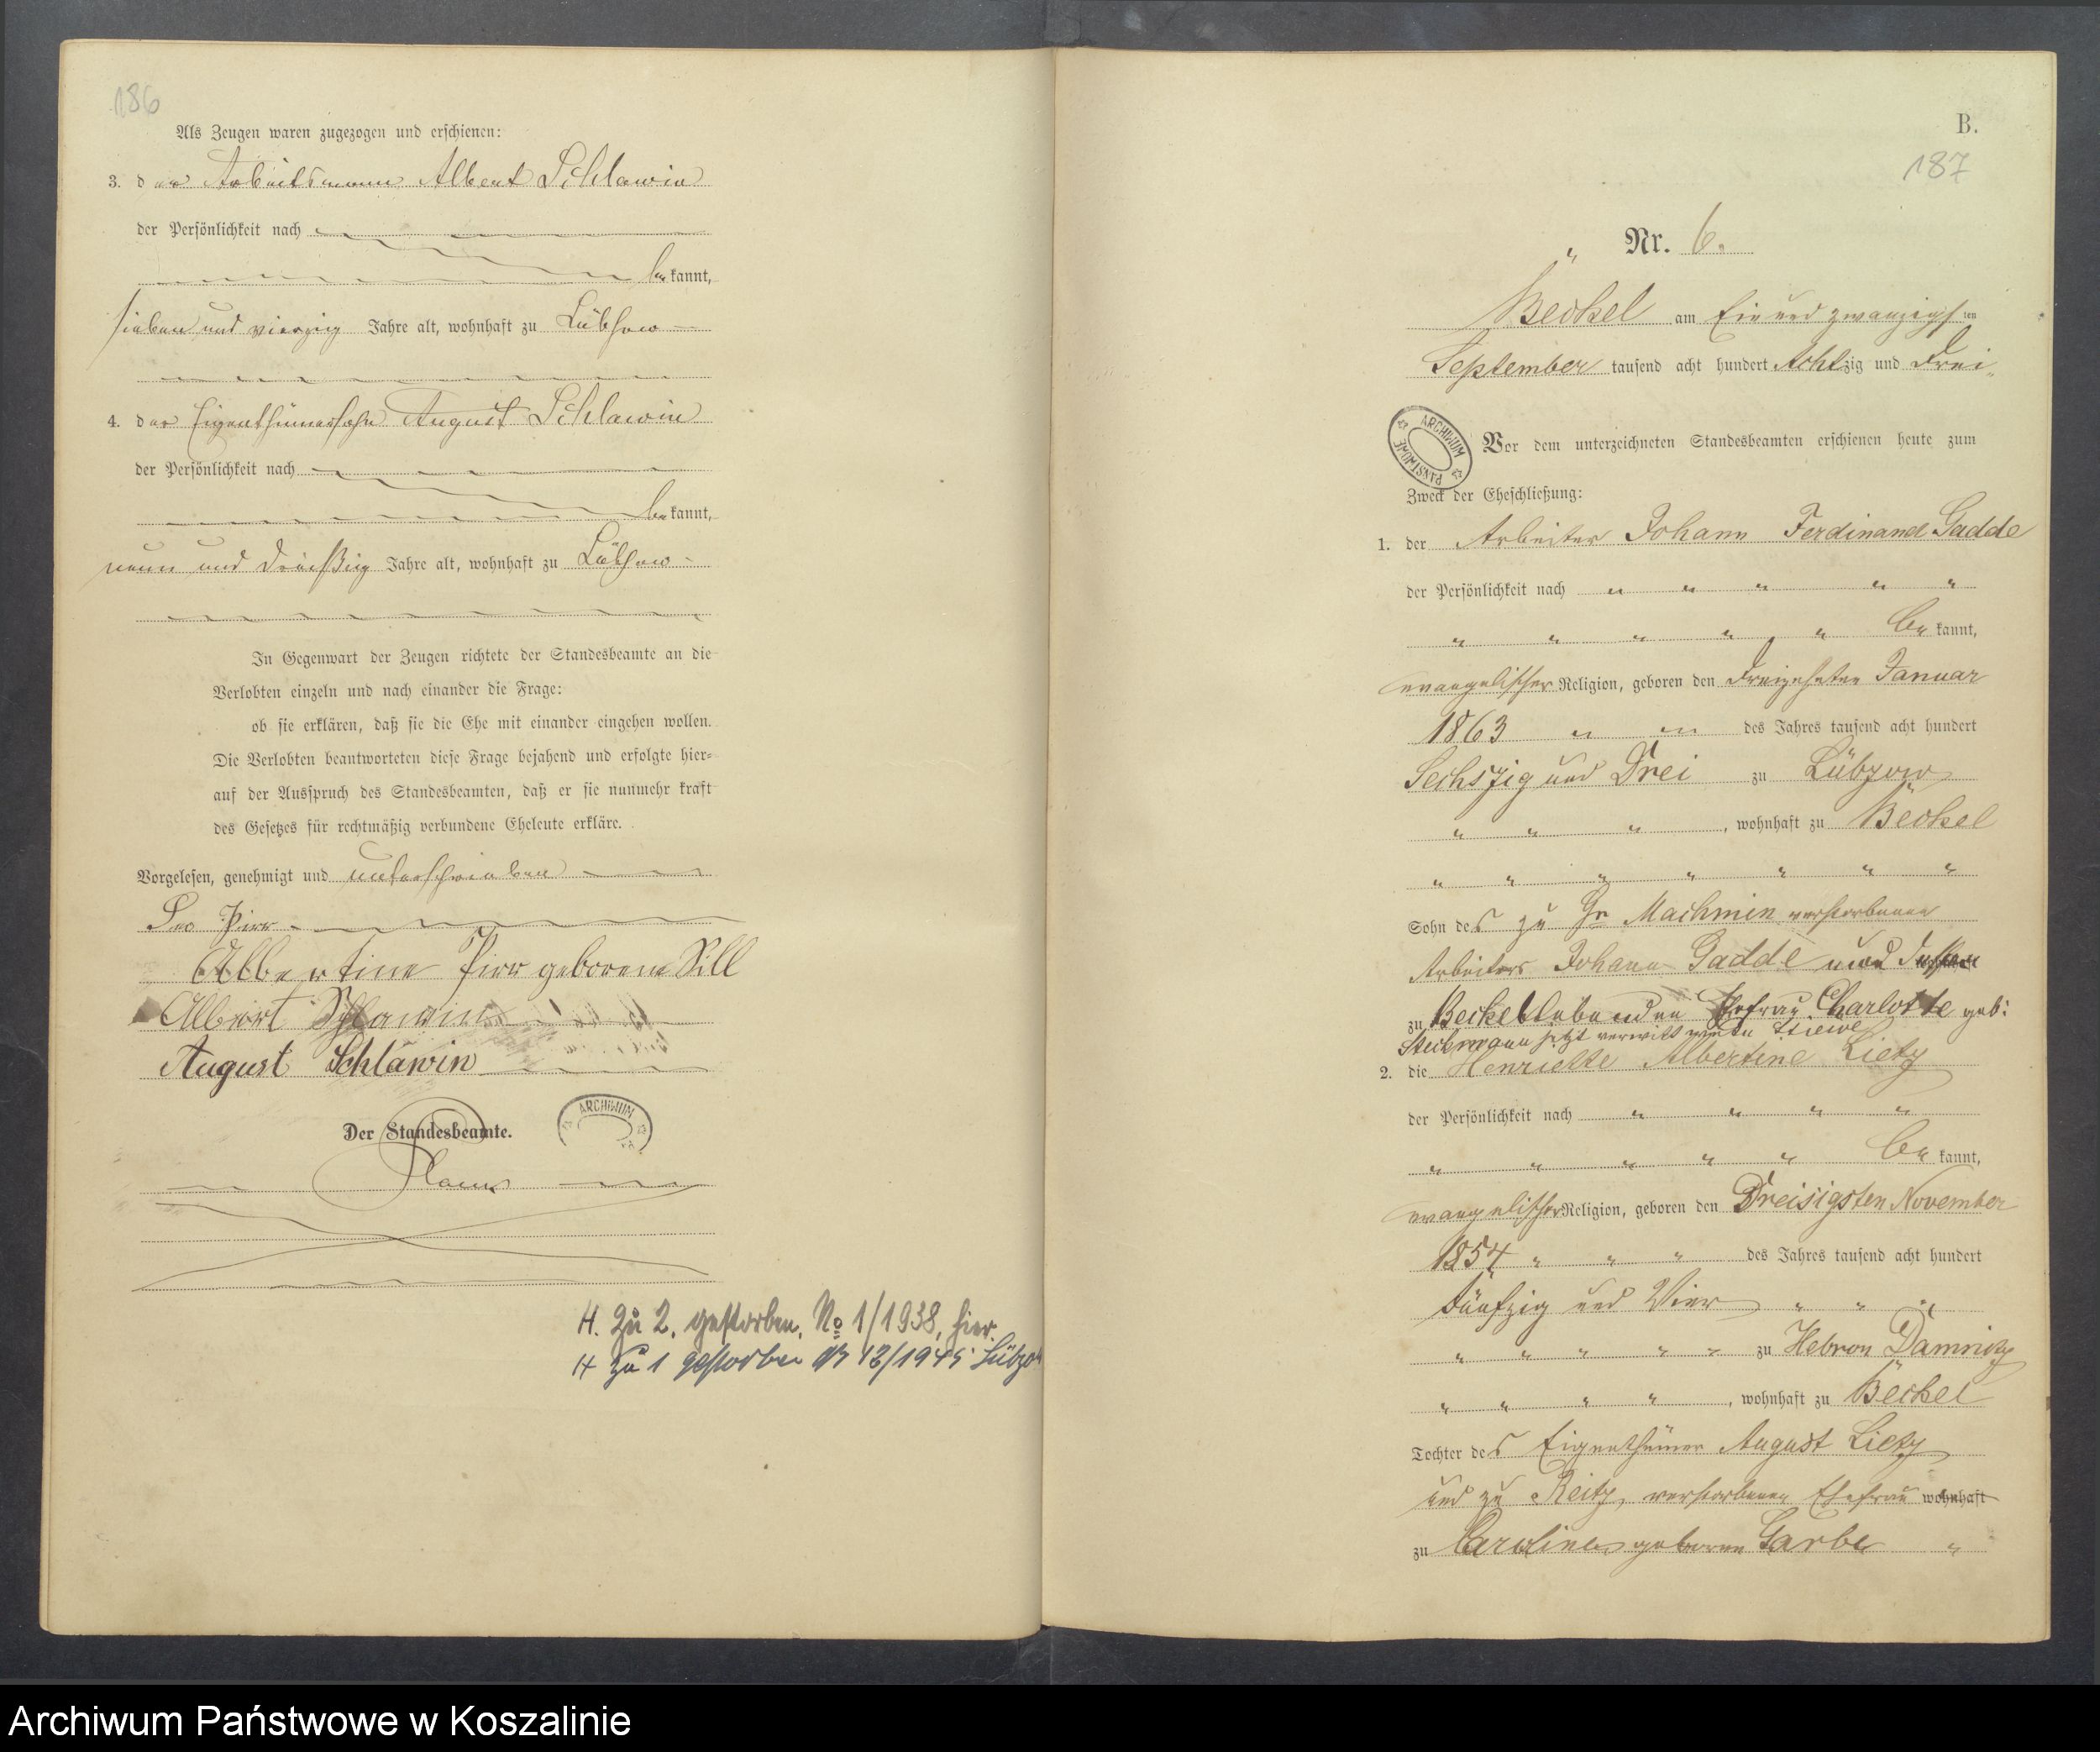 186
Als Zeugen waren zugezogen und erschienen:
3. der Arbeitsmann Albert Schlawin
der Persönlichkeit nach
bekannt,
sieben und vierzig Jahre alt, wohnhaft zu Lübzow
4. der Eigenthümersohn August Schlawin
der Persönlichkeit nach
bekannt,
neun und dreißig Jahre alt, wohnhaft zu Lübzow
In Gegenwart der Zeugen richtete der Standesbeamte an die
Verlobten einzeln und nach einander die Frage:
ob sie erklären, daß sie die Ehe mit einander eingehen wollen.
Die Verlobten beantworteten diese Frage bejahend und erfolgte hier-
auf der Ausspruch des Standesbeamten, daß er sie nunmehr kraft
des Gesetzes für rechtmäßig verbundene Eheleute erkläre.
Vorgelesen, genehmigt und unterschrieben
Pirr
Albertine Pirr geborene Sill
Albert Schlawin
August Schlawin
Der Standesbeamte.
ARCHIWUM
H. Zu 2. gestorben. No 1/1938, hier.
H zu 1 gestorben 12/1945 Lübzow
B.
187
Nr. 6.
Beckel am Ein und zwanzigsten
September tausend acht hundert Achtzig und Drei
ARCHIWUM PAŃSTWOWE
Vor dem unterzeichneten Standesbeamten erschienen heute zum
Zweck der Eheschließung:
1. der Arbeiter Johann Ferdinand Gadde
der Persönlichkeit nach " " " " "
" " " " " bekannt,
evangelischer Religion, geboren den dreizehnten Januar
1863 " " des Jahres tausend acht hundert
Sechszig und Drei zu Lübzow
" " " , wohnhaft zu Beckel
" " " " " " "
Sohn des zu Gr Machmin verstorbenen
Arbeiters Johann Gadde und dessen
zu Beckel lebenden Ehefrau Charlotte geb:
jetzt
2. die Henriette Albertine Lietz
der Persönlichkeit nach " " " "
" " " " " bekannt,
evangelischer Religion, geboren den Dreisigsten November
1854 " " " des Jahres tausend acht hundert
Fünfzig und Vier " " "
" " " " " zu Hebron Damnitz
" " " " , wohnhaft zu Beckel
Tochter des Eigenthümer August Lietz
und zu Reitz, verstorbenen Ehefrau wohnhaft
zu Caroline geborene Garbe "
Archiwum Państwowe w Koszalinie